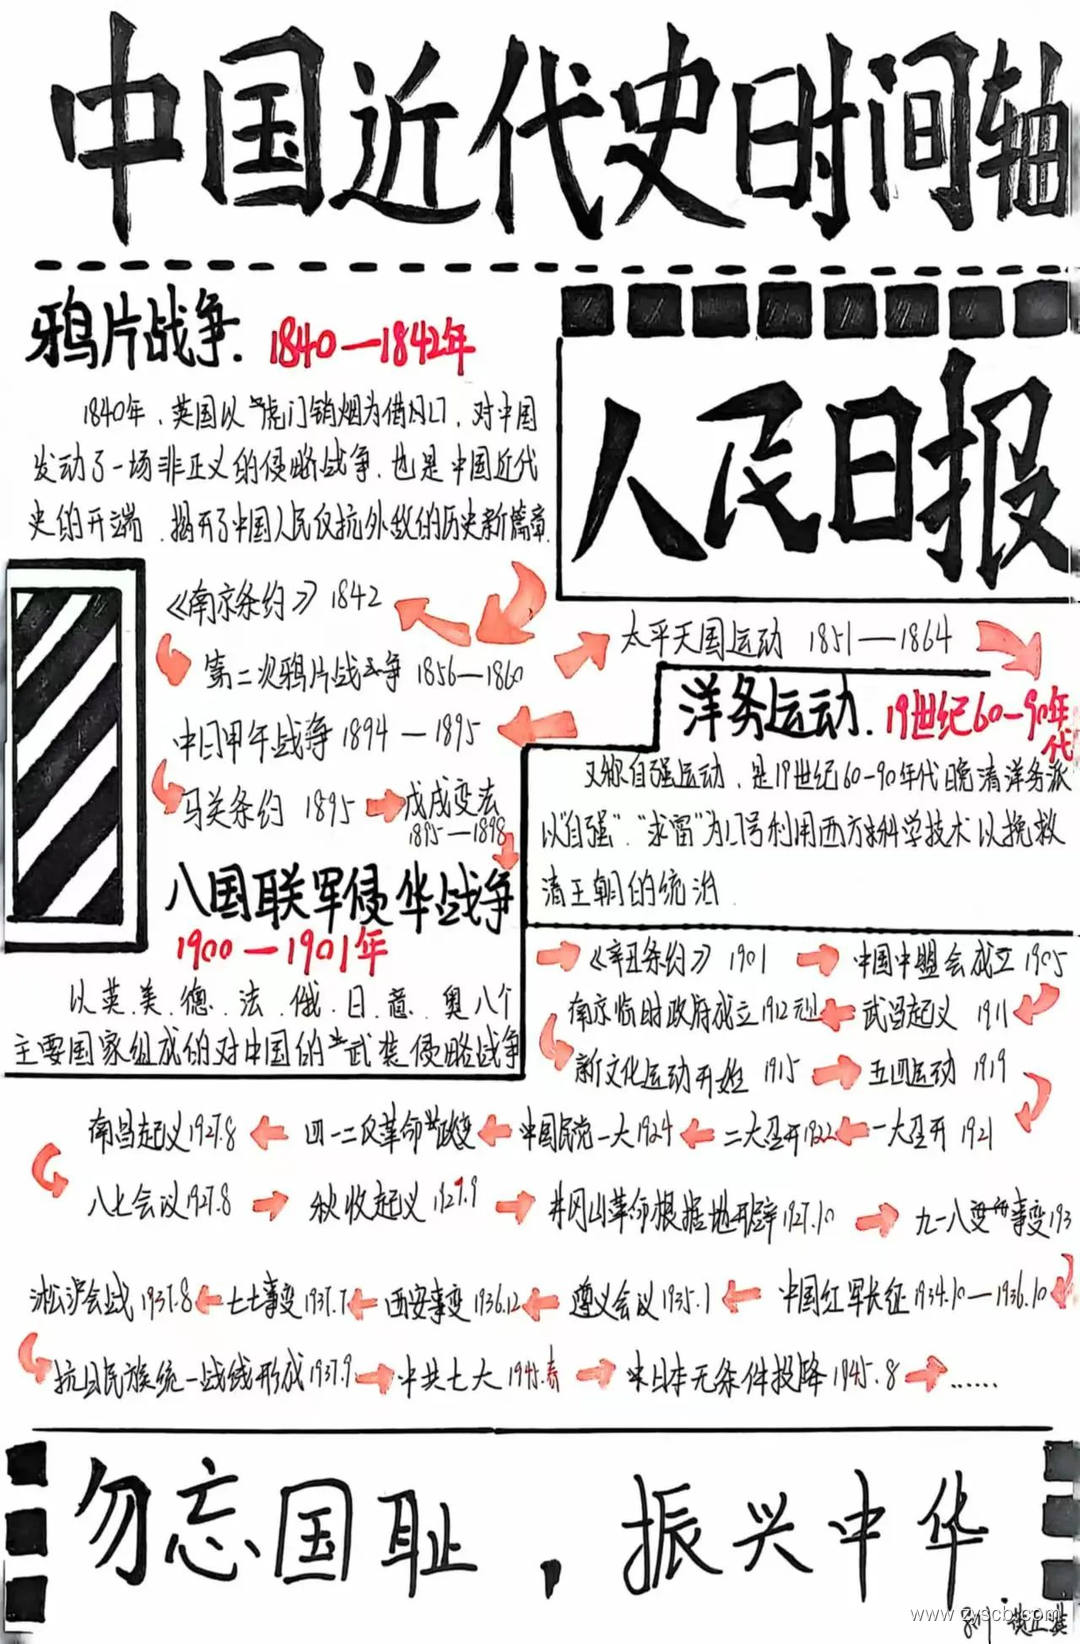 中国近代史时间轴
鸦片战争. 1840—1842年
1840年，英国以"虎门销烟为借口，对中国
发动了一场非正义的侵略战争，也是中国近代
史的开端，揭开了中国人民反抗外敌的历史新篇章.
人民日报
《南京条约》1842
太平天国运动 1851—1864
第二次鸦片战争 1856—1860
洋务运动. 19世纪60-90年代
中日甲午战争 1894—1895
又称自强运动，是19世纪60-90年代晚清洋务派
以"自强""求富"为口号利用西方科学技术以挽救
清王朝的统治.
马关条约 1895
戊戌变法
1895—1898
八国联军侵华战争
1900—1901年
以英.美.德.法.俄.日.意.奥八个
主要国家组成的对中国的武装侵略战争
《辛丑条约》1901
中国中盟会成立1905
南京临时政府成立1912元旦
武昌起义 1911
新文化运动开始 1915
五四运动 1919
南昌起义1927.8
四一二反革命政变
中国民党一大1924
二大召开1922
一大召开 1921
八七会议1927.8
秋收起义1927.9
井冈山革命根据地开辟1927.10
九一八事变193
淞沪会战1937.8
七七事变1937.7
西安事变1936.12
遵义会议1935.1
中国红军长征1934.10—1936.10
抗日民族统一战线形成1937.9
中共七大1945.春
日本无条件投降1945.8
......
勿忘国耻，振兴中华
www.zyscb.com